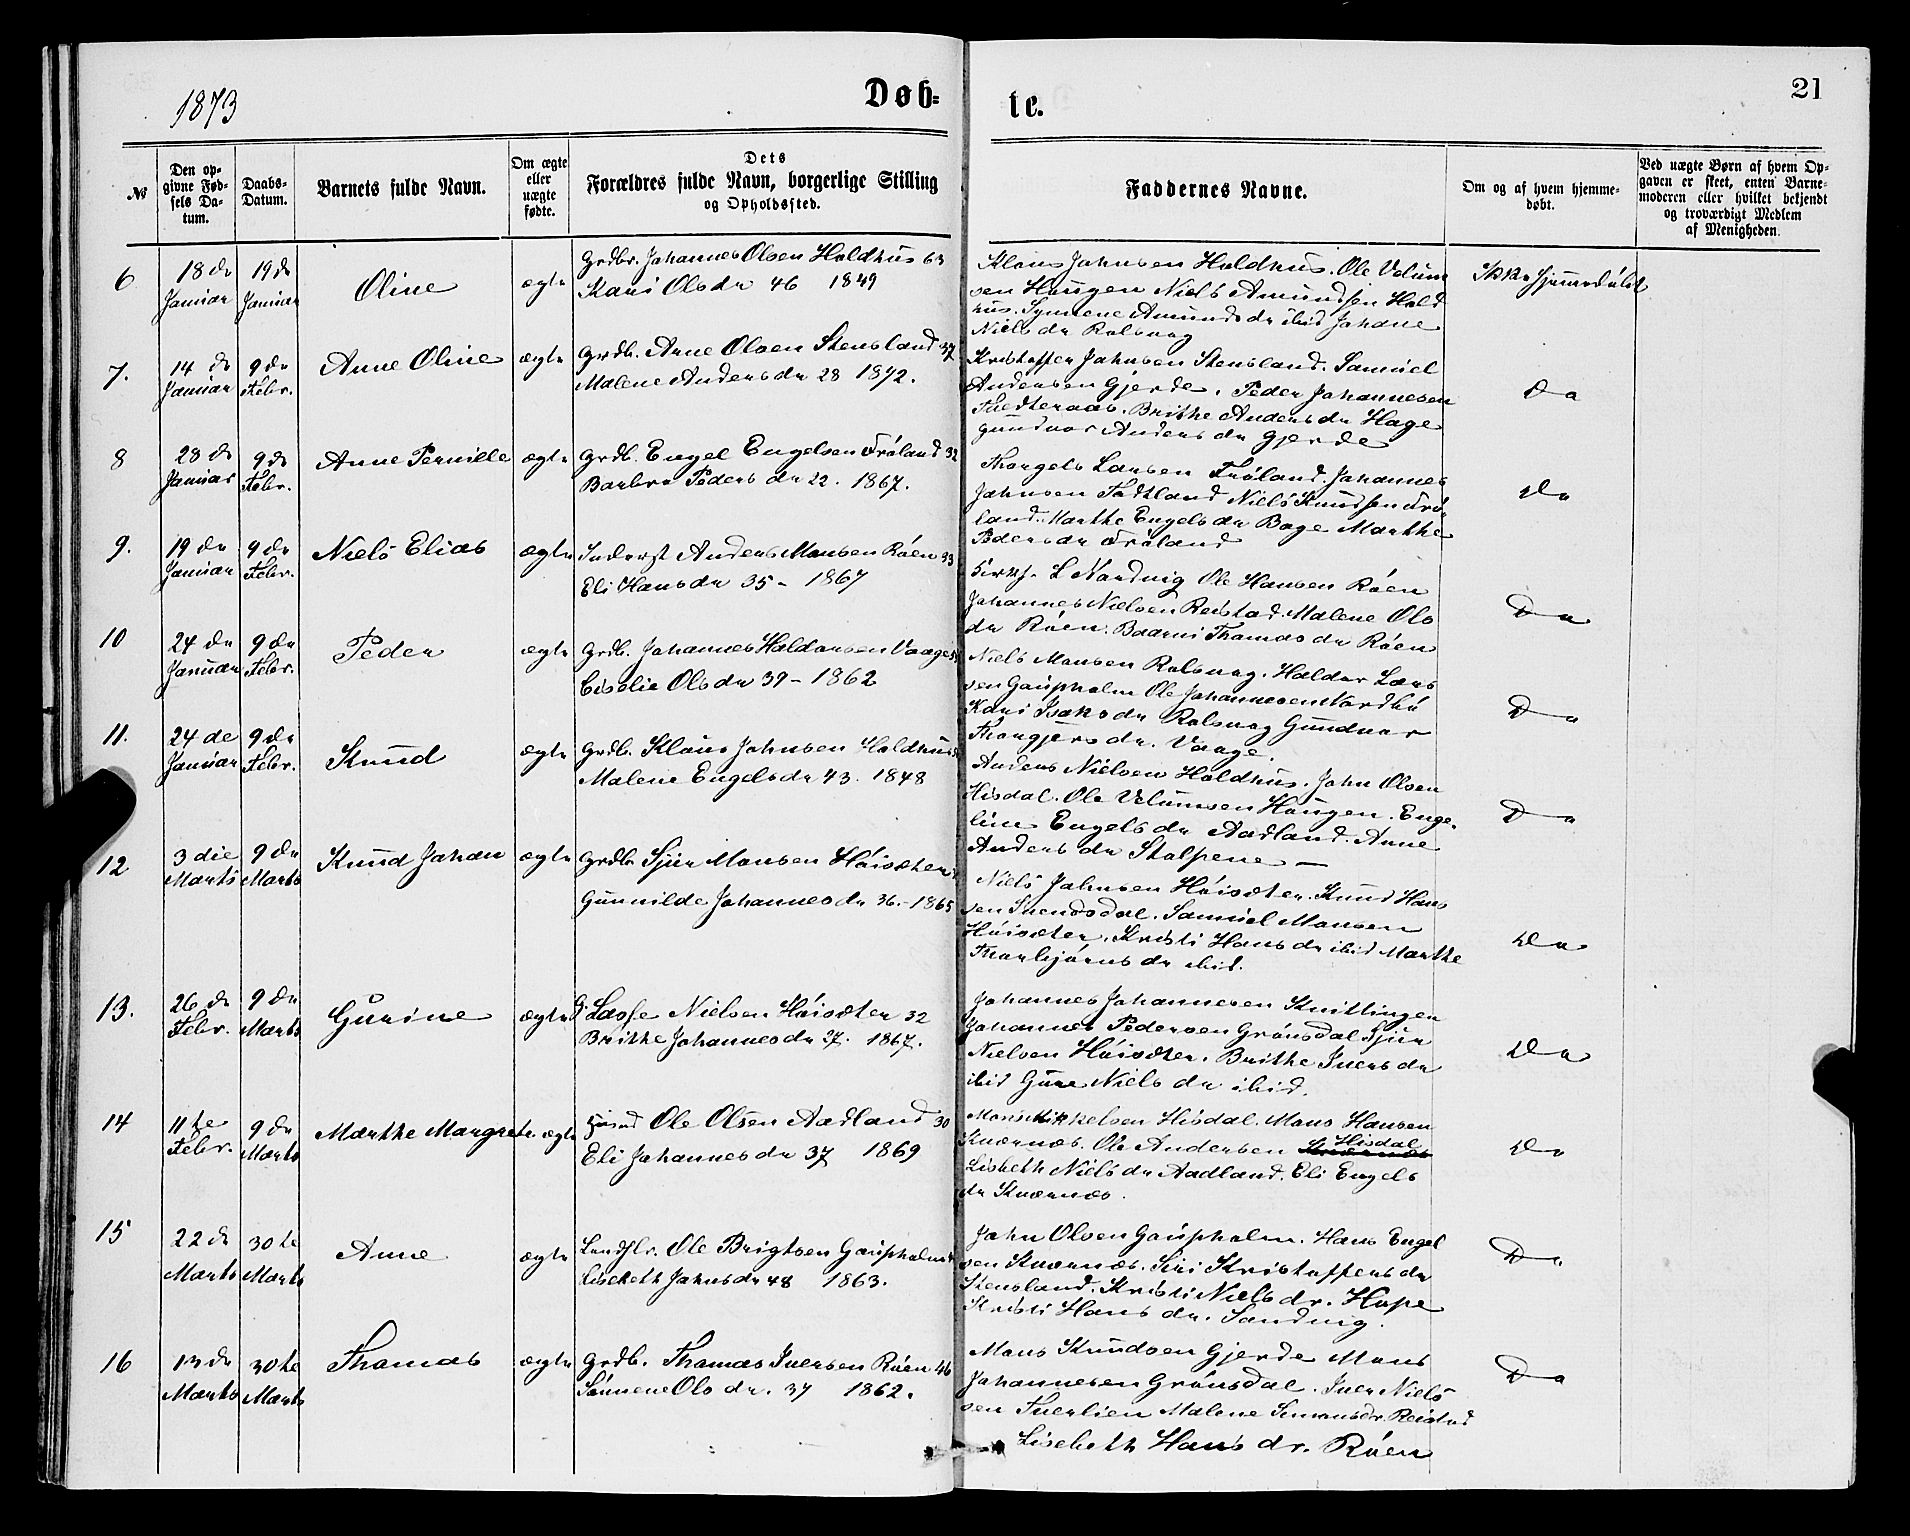 1873
Døb-
te.
21
№
Den op-
givne Fød-
sels Da-
tum.
Daabs-
Datum.
Barnets fulde Navn.
Om ægte
eller
uægte
fødte.
Dets
Forældres fulde Navn, borgerlige Stilling
og Opholdssted.
Faddernes Navne.
Om og af hvem hjemme-
døbt.
Ved uægte Børn af hvem Op-
gaven er skeet, enten Barne-
moderen eller hvilket bekjendt
og troværdigt Medlem
af Menigheden.
6
18de
Januar
19de
Januar
Oline
ægte
Grdbr. Johannes Olsen Holdhus 63
Kari Olsdr 46 1849
Klaus Johnsen Holdhus. Ole Velum
sen Haugen Niels Amundsen Hold
hus. Synnene Amundsdr ibid Johane
Nielsdr Rolsvaag
Ikke hjemmedøbt
7.
14 de
Januar
9de
Febr.
Anne Oline
ægte
Grdb. Arne Olsen Stensland 37
Malene Andersdr 28 1872.
Kristoffer Johnsen Stensland. Samuel
Andersen Gjerde. Peder Johannesen
Tuedteraas. Brithe Andersdr Hage
Gundvor Andersdr Gjerde
Do
8
28de
Januar
9de
Febr.
Anne Pernille
ægte
Grdb. Engel Engelsen Frøland 32
Barbra Pedersdr 22. 1867.
Thorgels Larsen Frøland. Johannes
Johnsen Tødtland Niels Knudsen Frø-
land. Marthe Engelsdr Boge Marthe
Pedersdr Frøland
Do
9.
19de
Januar
9de
Febr.
Niels Elias
ægte
Inderst Anders Monsen Røen 33
Eli Hansdr 35 - 1867
Kirks. L Nordvig Ole Hansen Røen
Johannes Nielsen Reistad. Malene Ols
dr Røen. Baarni Thomasdr Røen
Do
10
24de
Januar
9de
Febr.
Peder
ægte
Grdb. Johannes Haldorsen Vaage
Ciselie Olsdr 39 - 1862
Niels Monsen Rolsvag. Haldor Lars
sen Gaupholm Ole Johannesen Nordbø
Kari Isaksdr Rolsvag Gundvor
Thorgjersdr. Vaage.
Do
11.
24de
Januar
9de
Febr.
Knud
ægte
Grdb. Klaus Johnsen Holdhus
Malene Engelsdr 43. 1848
Anders Nielsen Holdhus. John Olsen
Hisdal. Ole Velumsen Haugen. Enge-
line Engelsdr Aadland. Anne
Andersdr Stolpene -
Do
12
3die
Marts
9de
Marts
Knud Johan
ægte
Grdb Sjur Monsen Høisæter
Gunnilde Johannesdr 36. - 1865
Niels Johnsen Høisæter. Knud Hans
sen Svendsdal. Samuel Monsen
Høisæter. Kristi Hansdr ibid Marthe
Thorbjørnsdr ibid.
Do
13.
26de
Febr.
9de
Marts
Gurine
ægte
G. Lasse Nielsen Høisæter 32
Brithe Johannesdr 27. 1867.
Johannes Johannesen Kvittingen
Johannes Pedersen Grønsdal Sjur
Nielsen Høisæter. Brithe Iversdr
ibid Gure Nielsdr ibid.
Do
14
11te
Febr.
9de
Marts
Marthe Margrete
ægte
Ole Olsen Aadland 30
Eli Johannesdr 37 1869
Mons Mikkelsen Hisdal. Mons Hansen
Kværnæs. Ole Andersen Hisdal
Lisbeth Nielsdr Aadland. Eli Engels
dr Kværnæs.
Do
15
22de
Marts
30te
Marts
Anne
ægte
Ole Brigtsen Gaupholm
Lisebeth Johnsdr 48 1863.
John Olsen Gaupholm. Hans Engel
sen Kværnæs. Siri Kristoffersdr
Stensland. Kristi Nielsdr. Hope
Kristi Hansdr. Sandvig.
Do
16
13de
Marts
30te
Marts
Thomas
ægte
Grdb. Thomas Iversen Røen 46
Sønnene Olsdr. 37 1862.
Mons Knudsen Gjerde Mons
Johannesen Grønsdal. Iver Niels
sen Tuerlien Malene Simonsdr. Reistad
Lisebeth Hansdr. Røen
Do